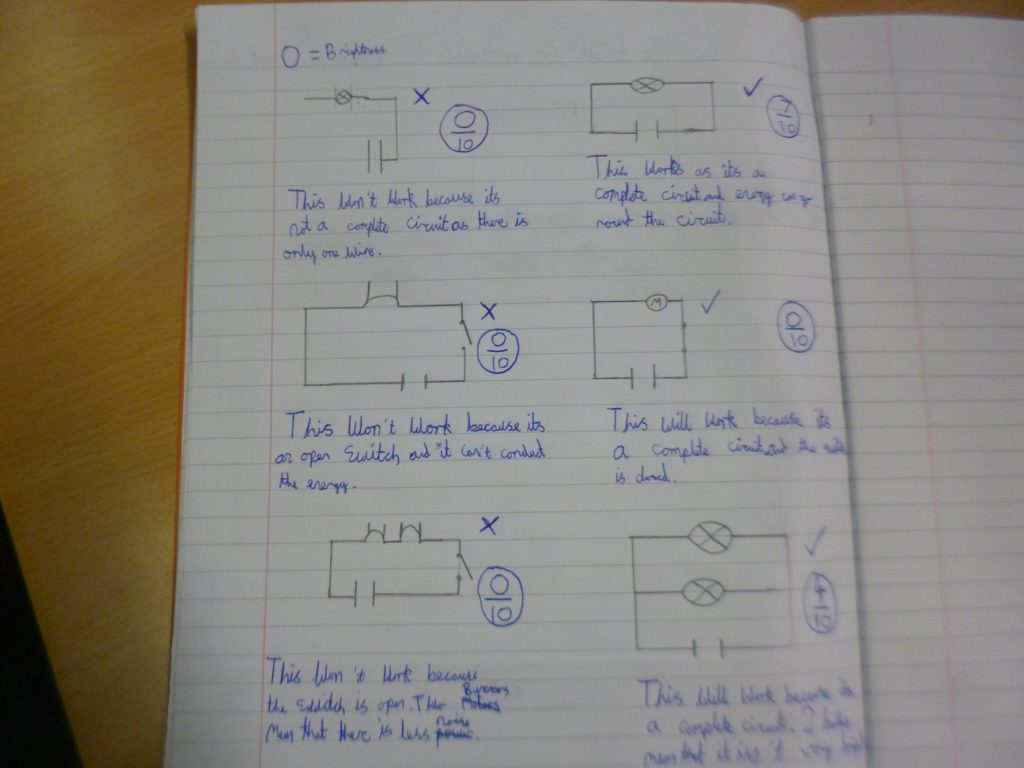 O = Brightness
X
0
10
This Won't Work because its
not a complete circuit as there is
only one wire.
✓
7
10
This Works as its a
complete circuit and energy can go
round the circuit.
X
0
10
This Won't Work because its
an open Switch and it can't conduct
the energy.
M
✓
0
10
This Will Work because its
a complete circuit and the
is closed.
X
0
10
This Won't Work because
the switch is open. Two Buzzers
Mean that there is less noise.
✓
4
10
This Will Work because its
a complete circuit. 2 bulbs
mean that it isn't very